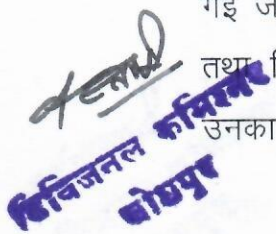 गई ज
तथा
उनका
डिविजनल कमिश्नर
जोधपुर